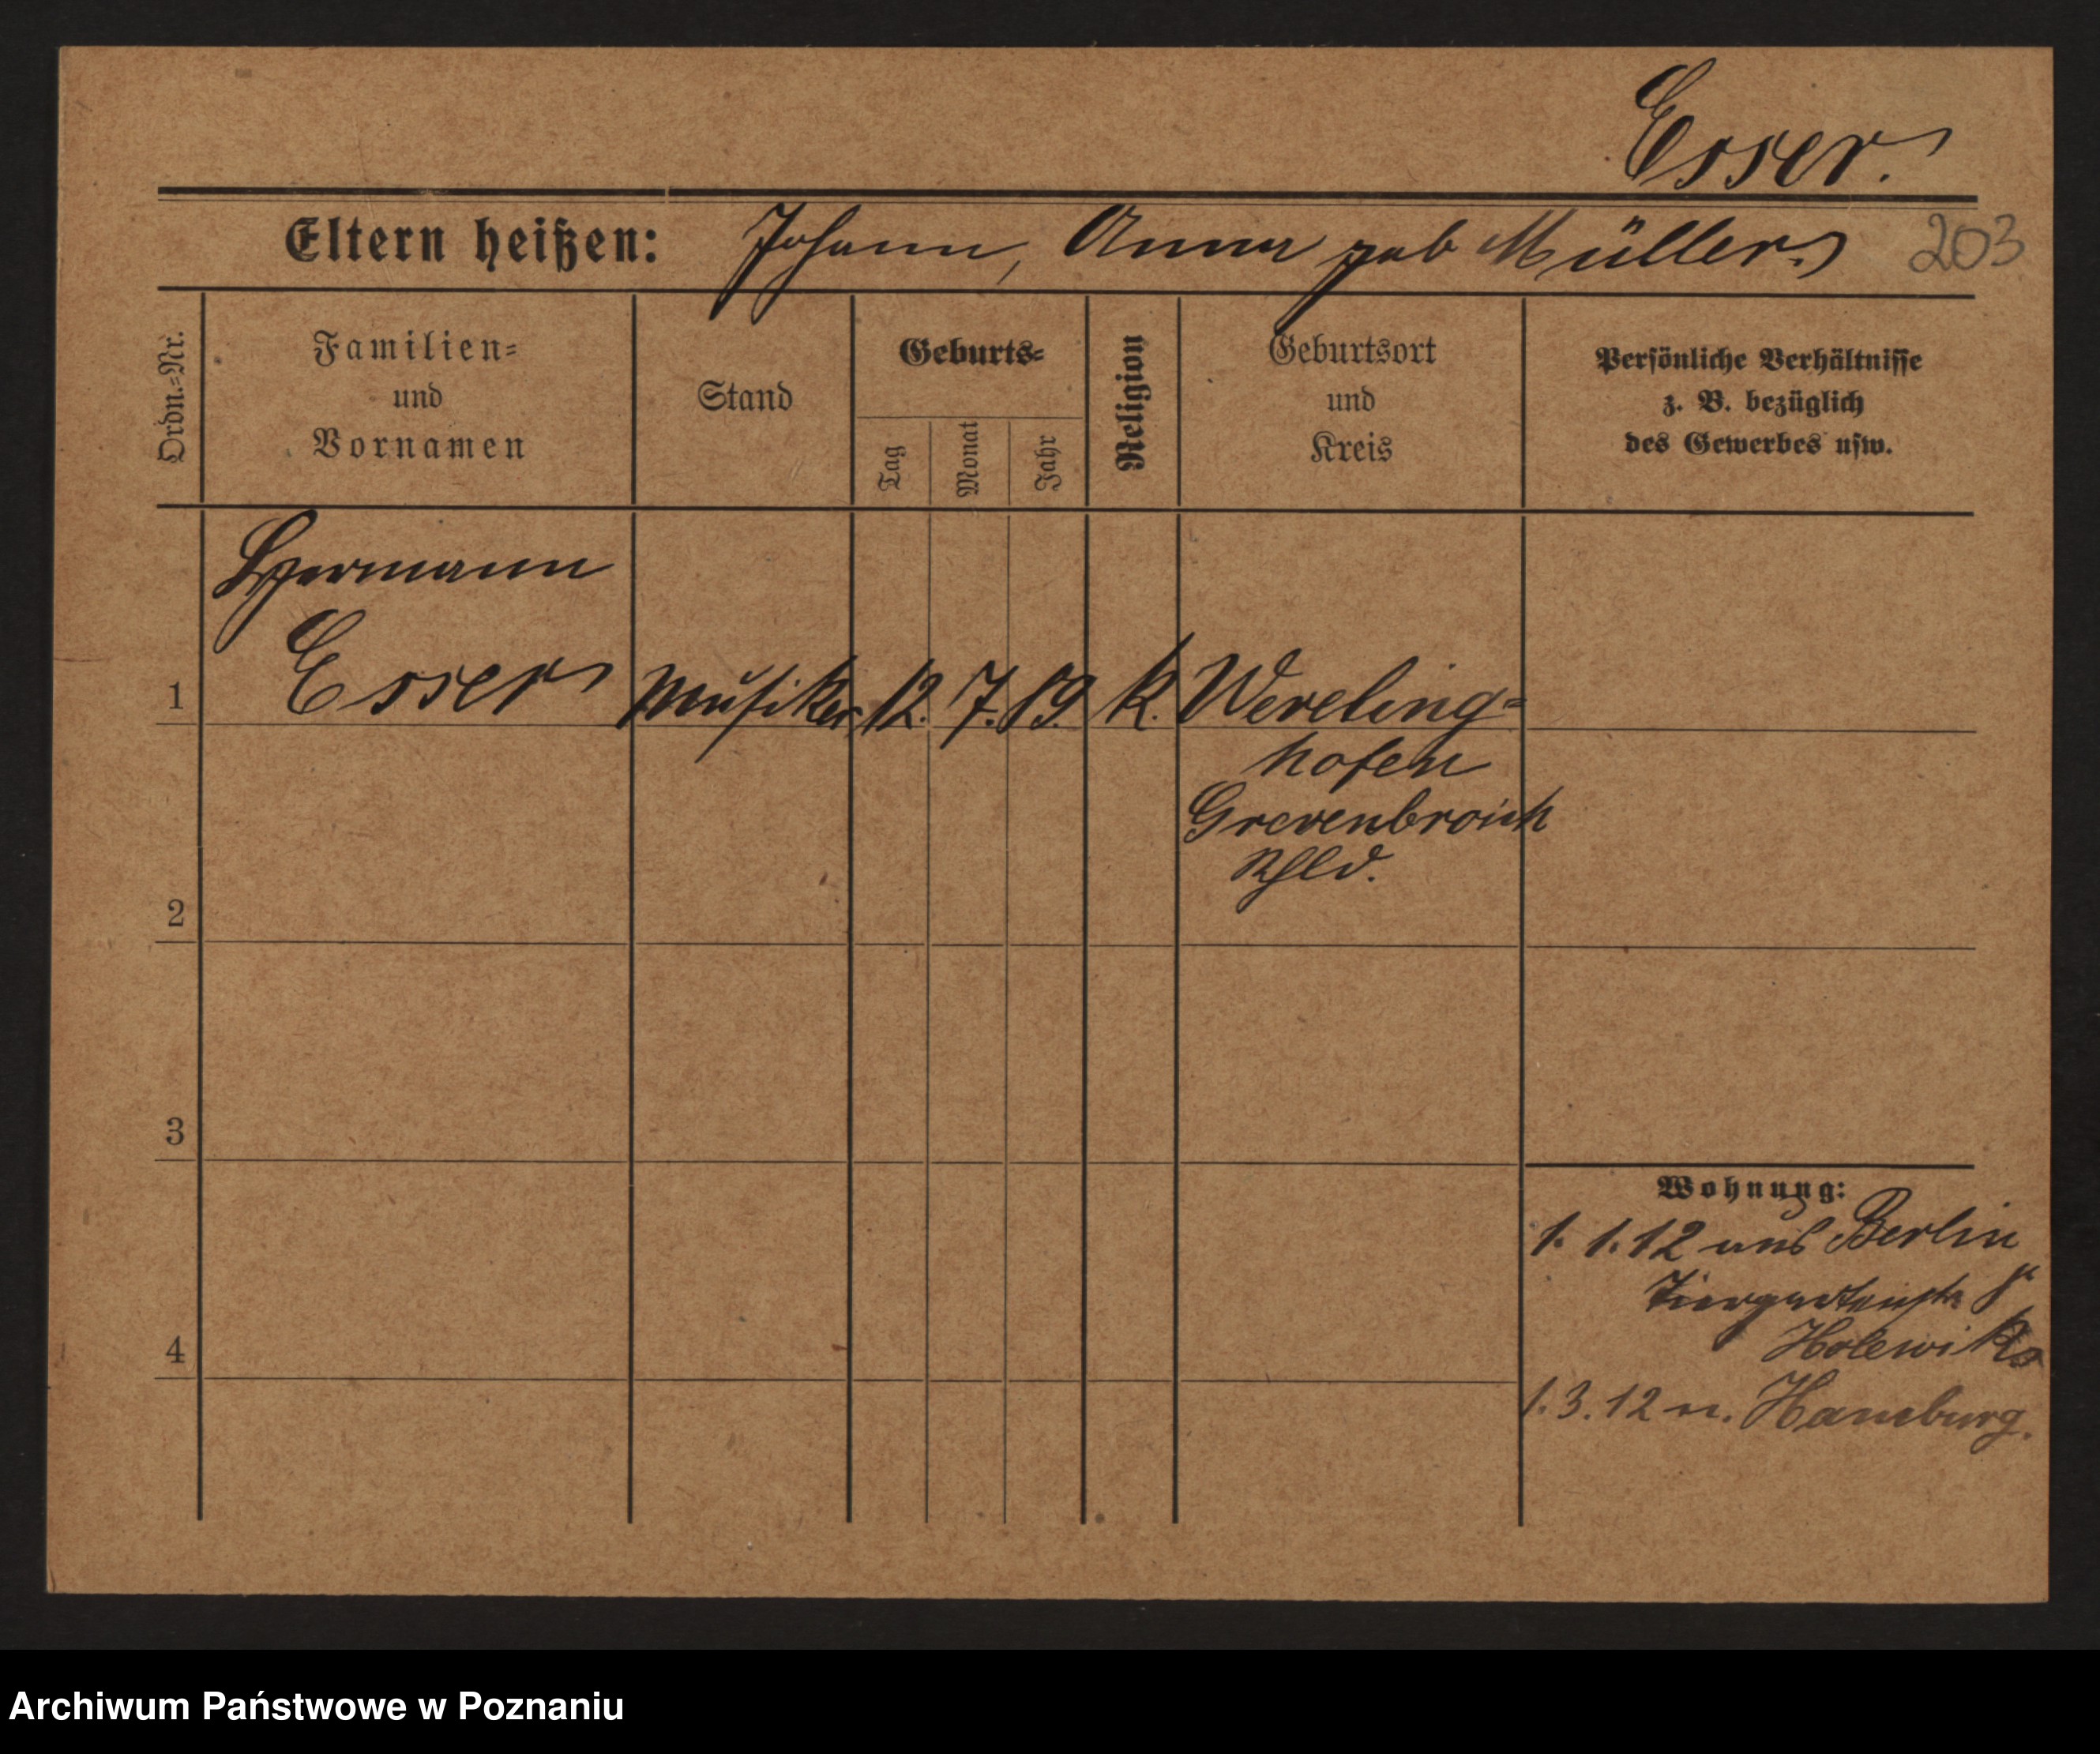 Esser.
Eltern heißen: Johann, Anna geb Müller. 203
Ordn.=Nr.
Familien=
und
Vornamen
Stand
Geburts=
Tag
Monat
Jahr
Religion
Geburtsort
und
Kreis
Persönliche Verhältnisse
z. B. bezüglich
des Gewerbes usw.
Hermann
1 Esser Musiker 12. 7. 89. K. Weveling=
hofen
Grevenbroich
Rhld.
2
3
Wohnung:
1. 1. 12 aus Berlin
Tiergartenstr 8
4
1. 3. 12 n. Hamburg.
Archiwum Państwowe w Poznaniu